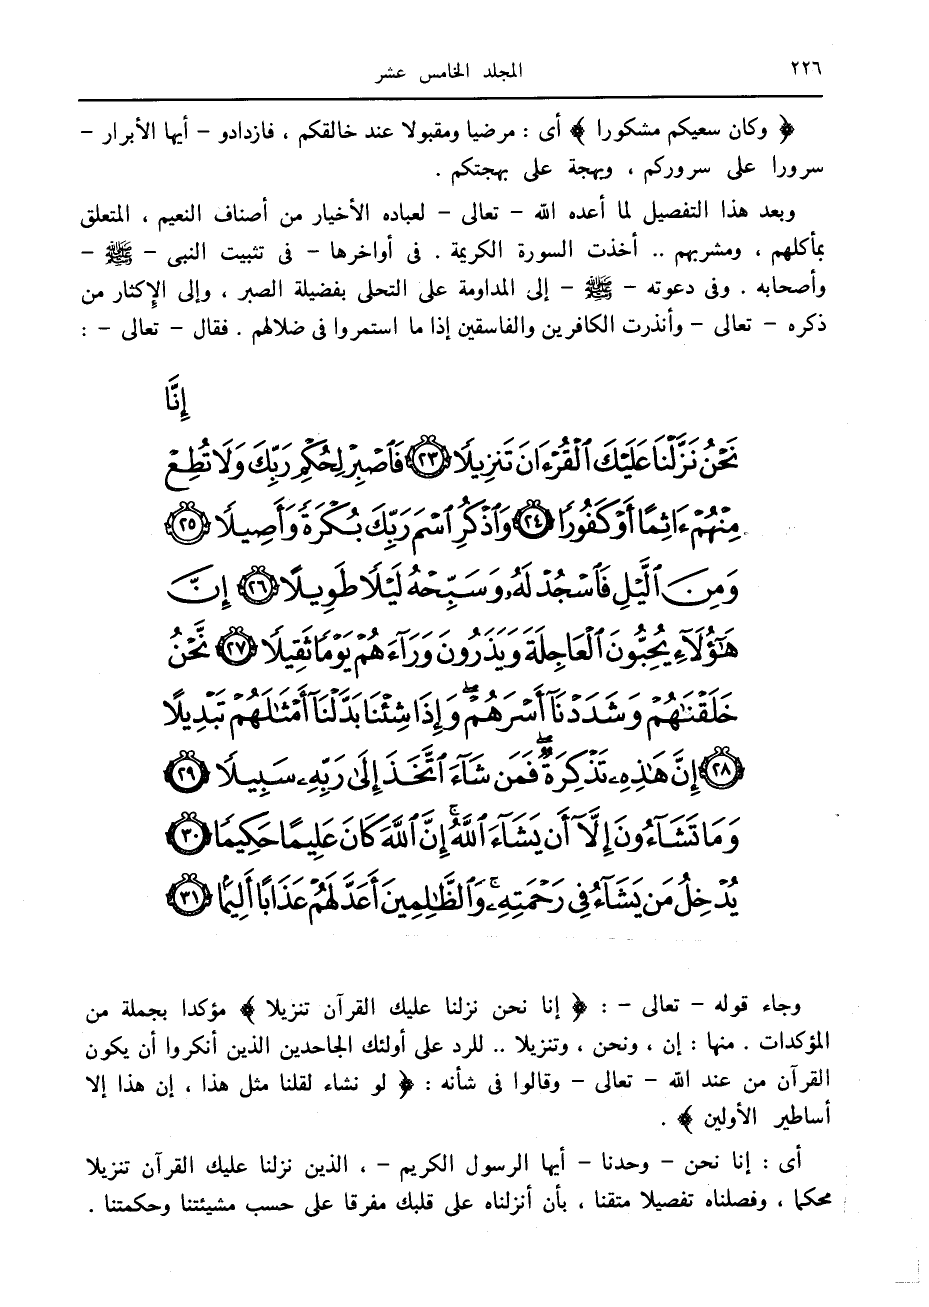 ٢٢٦
المجلد الخامس عشر
﴿ وكان سعيكم مشكورا ﴾ أى : مرضيا ومقبولا عند خالقكم ، فازدادو – أيها الأبرار –
سرورا على سروركم ، وبهجة على بهجتكم .
وبعد هذا التفصيل لما أعده الله – تعالى – لعباده الأخيار من أصناف النعيم ، المتعلق
بمأكلهم ، ومشربهم .. أخذت السورة الكريمة . فى أواخرها – فى تثبيت النبى – ﷺ –
وأصحابه . وفى دعوته – ﷺ – إلى المداومة على التحلى بفضيلة الصبر ، وإلى الإكثار من
ذكره – تعالى – وأنذرت الكافرين والفاسقين إذا ما استمروا فى ضلالهم . فقال – تعالى – :
إِنَّا
نَحْنُ نَزَّلْنَا عَلَيْكَ ٱلْقُرْءَانَ تَنزِيلًا ٢٣ فَٱصْبِرْ لِحُكْمِ رَبِّكَ وَلَا تُطِعْ
مِنْهُمْ ءَاثِمًا أَوْ كَفُورًا ٢٤ وَٱذْكُرِ ٱسْمَ رَبِّكَ بُكْرَةً وَأَصِيلًا ٢٥
وَمِنَ ٱلَّيْلِ فَٱسْجُدْ لَهُۥ وَسَبِّحْهُ لَيْلًا طَوِيلًا ٢٦ إِنَّ
هَٰٓؤُلَآءِ يُحِبُّونَ ٱلْعَاجِلَةَ وَيَذَرُونَ وَرَآءَهُمْ يَوْمًا ثَقِيلًا ٢٧ نَّحْنُ
خَلَقْنَٰهُمْ وَشَدَدْنَآ أَسْرَهُمْ ۖ وَإِذَا شِئْنَا بَدَّلْنَآ أَمْثَٰلَهُمْ تَبْدِيلًا
٢٨ إِنَّ هَٰذِهِۦ تَذْكِرَةٌ ۖ فَمَن شَآءَ ٱتَّخَذَ إِلَىٰ رَبِّهِۦ سَبِيلًا ٢٩
وَمَا تَشَآءُونَ إِلَّآ أَن يَشَآءَ ٱللَّهُ ۚ إِنَّ ٱللَّهَ كَانَ عَلِيمًا حَكِيمًا ٣٠
يُدْخِلُ مَن يَشَآءُ فِى رَحْمَتِهِۦ ۚ وَٱلظَّٰلِمِينَ أَعَدَّ لَهُمْ عَذَابًا أَلِيمًۢا ٣١
وجاء قوله – تعالى – : ﴿ إنا نحن نزلنا عليك القرآن تنزيلا ﴾ مؤكدا بجملة من
المؤكدات . منها : إن ، ونحن ، وتنزيلا .. للرد على أولئك الجاحدين الذين أنكروا أن يكون
القرآن من عند الله – تعالى – وقالوا فى شأنه : ﴿ لو نشاء لقلنا مثل هذا ، إن هذا إلا
أساطير الأولين ﴾ .
أى : إنا نحن – وحدنا – أيها الرسول الكريم – ، الذين نزلنا عليك القرآن تنزيلا
محكما ، وفصلناه تفصيلا متقنا ، بأن أنزلناه على قلبك مفرقا على حسب مشيئتنا وحكمتنا .